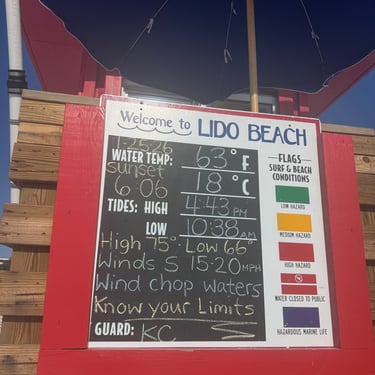 Welcome to LIDO BEACH
1·25·26
WATER TEMP: 63° F
Sunset
6:06
18° C
TIDES: HIGH 4:43 PM
LOW 10:38 AM
High 75° Low 66°
Winds S 15·20 MPH
Wind chop waters
Know your Limits
GUARD: KC
FLAGS
SURF & BEACH
CONDITIONS
LOW HAZARD
MEDIUM HAZARD
HIGH HAZARD
WATER CLOSED TO PUBLIC
HAZARDOUS MARINE LIFE